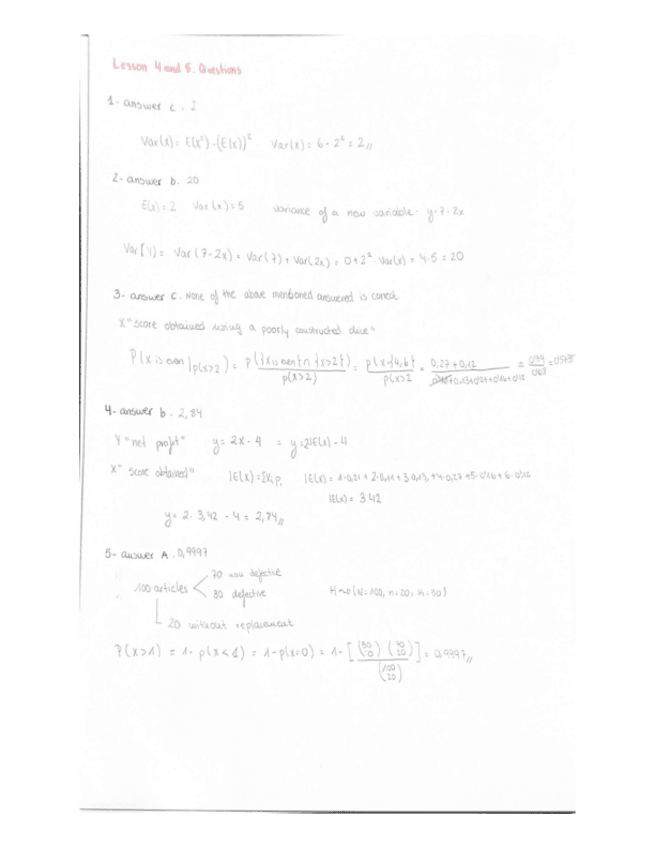 Lesson 4 and 5. Questions
1- answer c. 2
Var(x) = E(x²) - (E(x))² Var(x) = 6 - 2² = 2 //
2- answer b. 20
E(x) = 2 Var(x) = 5 variance of a new variable: y = 7 - 2x
Var(Y) = Var(7-2x) = Var(7) + Var(2x) = 0 + 2² · Var(x) = 4·5 = 20
3- answer c. None of the above mentioned answered is correct
X "score obtained using a poorly constructed dice"
P(X is even | p(x>2) = p({x is even} ∩ {x>2}) / p(x>2) = p(x={4,6} / p(x>2 = 0,27+0,12
4- answer b. 2,84
Y "net profit" y = 2x - 4 = y = 2 IE(x) - 4
X "score obtained" IE(x) = Σxᵢpᵢ IE(x) = 1·0,21 + 2·0,11 + 3·0,13 + 4·0,27 + 5·0,16 + 6·0,12
IE(x) = 3,42
y = 2 · 3,42 - 4 = 2,84 //
5- answer A. 0,9997
70 non defective
100 articles
30 defective H~(N=100, n=20, K=30)
20 without replacement
P(x>1) = 1 - p(x<1) = 1 - p(x=0) = 1 - = 0,9997 //